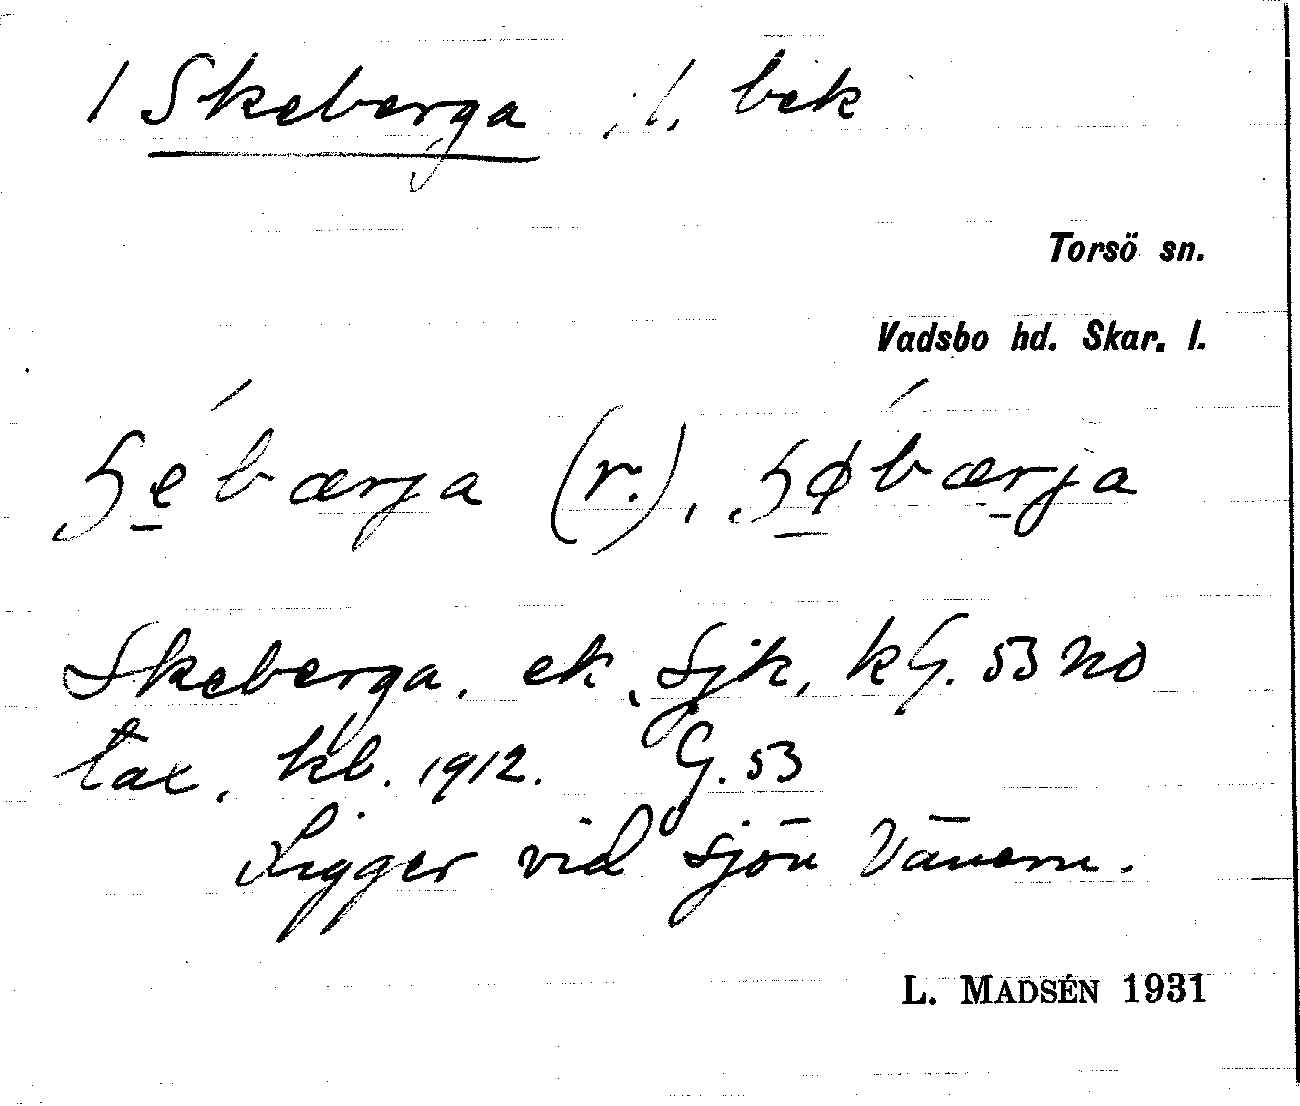 / Skeberga ; l. bek
Torsö sn.
Vadsbo hd. Skar. l.
bærja (r.),
Skeberga, ek, sjk, kG. 53 no
tax. kb. 1912. G. 53
Ligger vid sjön Vänern.
L. MADSÉN 1931